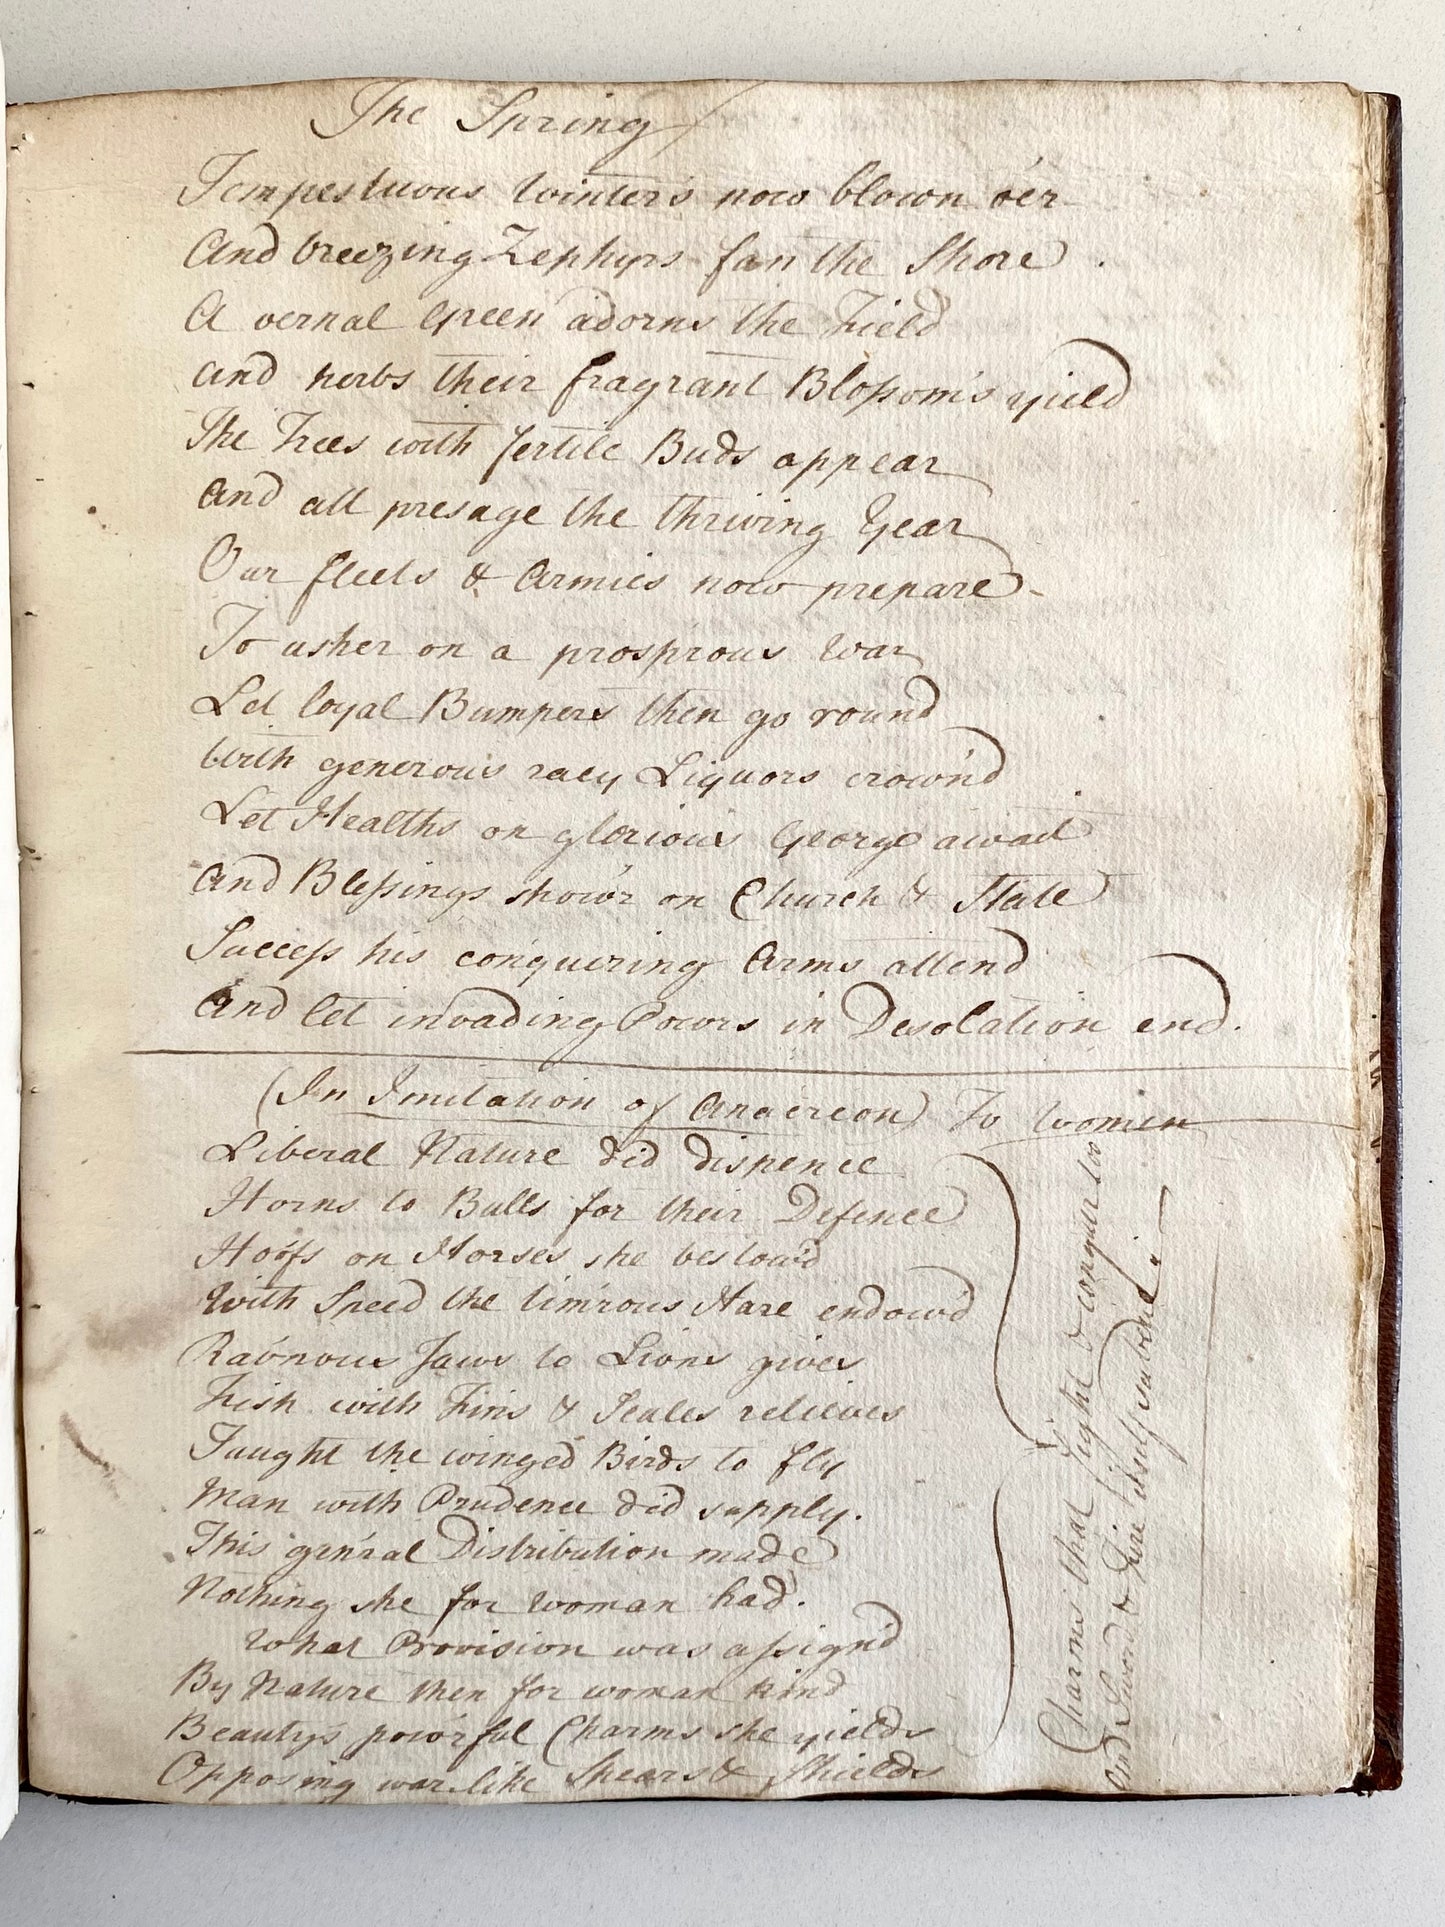 The Spring
Tempestuous Winter's now blown o'er
And breezing Zephyrs fan the Shore.
A vernal Green adorns the Field
And herbs their fragrant Blossom's yield
The Trees with fertile Buds appear
And all presage the thriving Year
Our fleets & Armies now prepare
To usher on a prosprous War
Let loyal Bumpers then go round
With generous racy Liquors crown'd
Let Healths on glorious George await
And Blessings show'r on Church & State
Success his conquering Arms attend
And let invading Powrs in Desolation end.
(In Imitation of Anacreon) To Women
Liberal Nature did dispence
Horns to Bulls for their Defence
Hoofs on Horses she bestow'd
With Speed the tim'rous Hare endow'd
Rav'nous Jaws to Lions gives
Fish with Fins & Scales relieves
Taught the winged Birds to fly
Man with Prudence did supply.
This gen'ral Distribution made
Nothing she for Woman had.
What Provision was assign'd
By Nature then for woman kind
Beauty's pow'rful Charms she yields
Opposing war-like Spears & Shields
Charms that fight & conquer too
And Sword & Fire itself subdue.